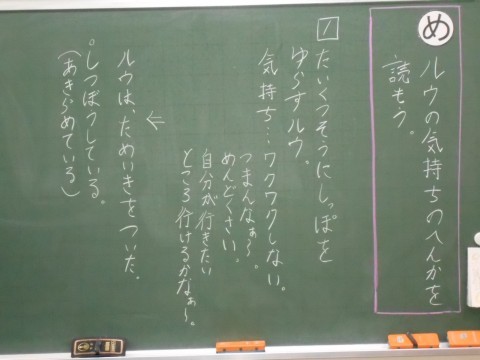 め
ルウの気持ちのへんかを
読もう。
1
たいくつそうにしっぽを
ゆらすルウ。
気持ち…ワクワクしない。
つまんなぁ〜。
めんどくさい。
自分が行きたい
ところ行けるかなぁ〜。
←
ルウは、ためいきをついた。
。しつぼうしている。
(あきらめている)